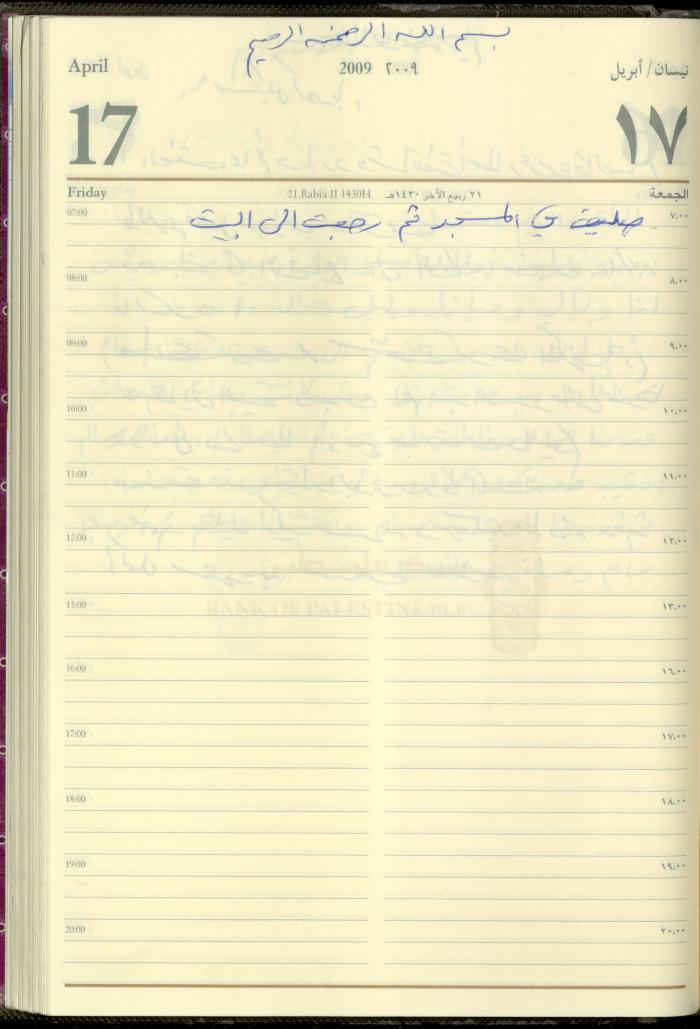 بسم الله الرحمن الرحيم
April 2009 ٢٠٠٩ نيسان/ أبريل
17 ١٧
Friday 21 Rabia II 1430H ٢١ ربيع الآخر ١٤٣٠هـ الجمعة
07:00 صليت في المسجد ثم رجعت الى البيت ٧,٠٠
08:00 ٨,٠٠
09:00 ٩,٠٠
10:00 ١٠,٠٠
11:00 ١١,٠٠
12:00 ١٢,٠٠
BANK OF PALESTINE PLC
13:00 ١٣,٠٠
16:00 ١٦,٠٠
17:00 ١٧,٠٠
18:00 ١٨,٠٠
19:00 ١٩,٠٠
20:00 ٢٠,٠٠